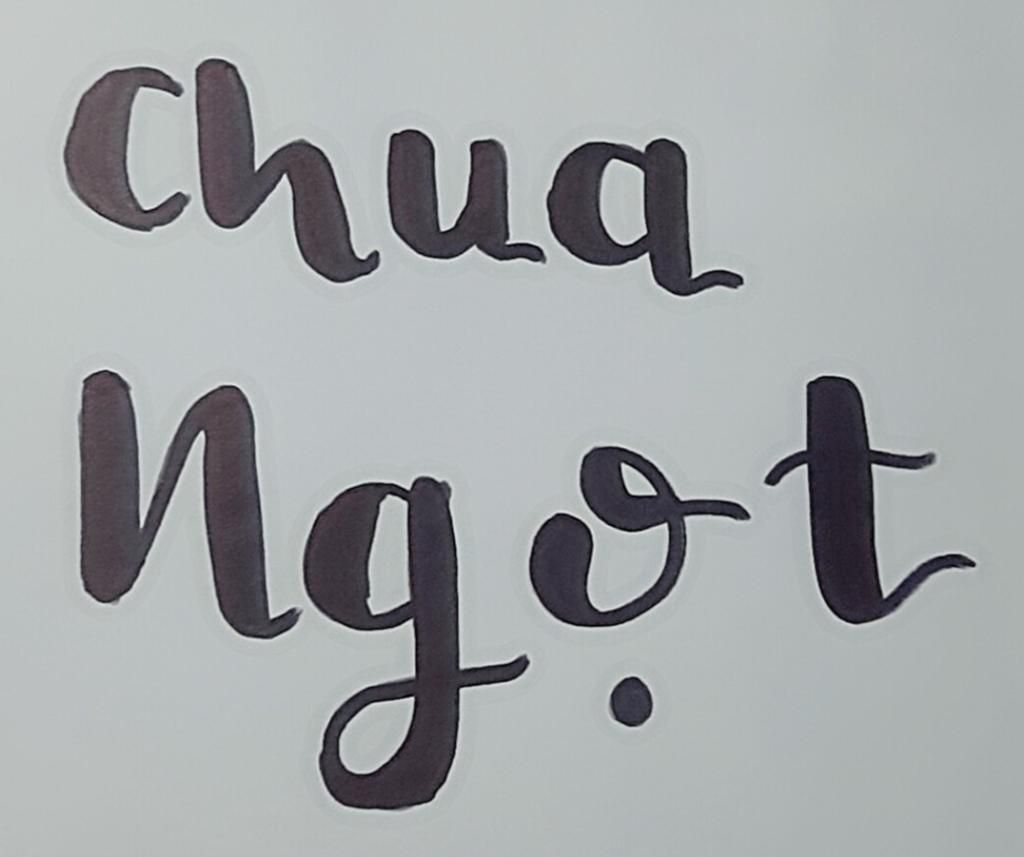 Chua
Ngọt